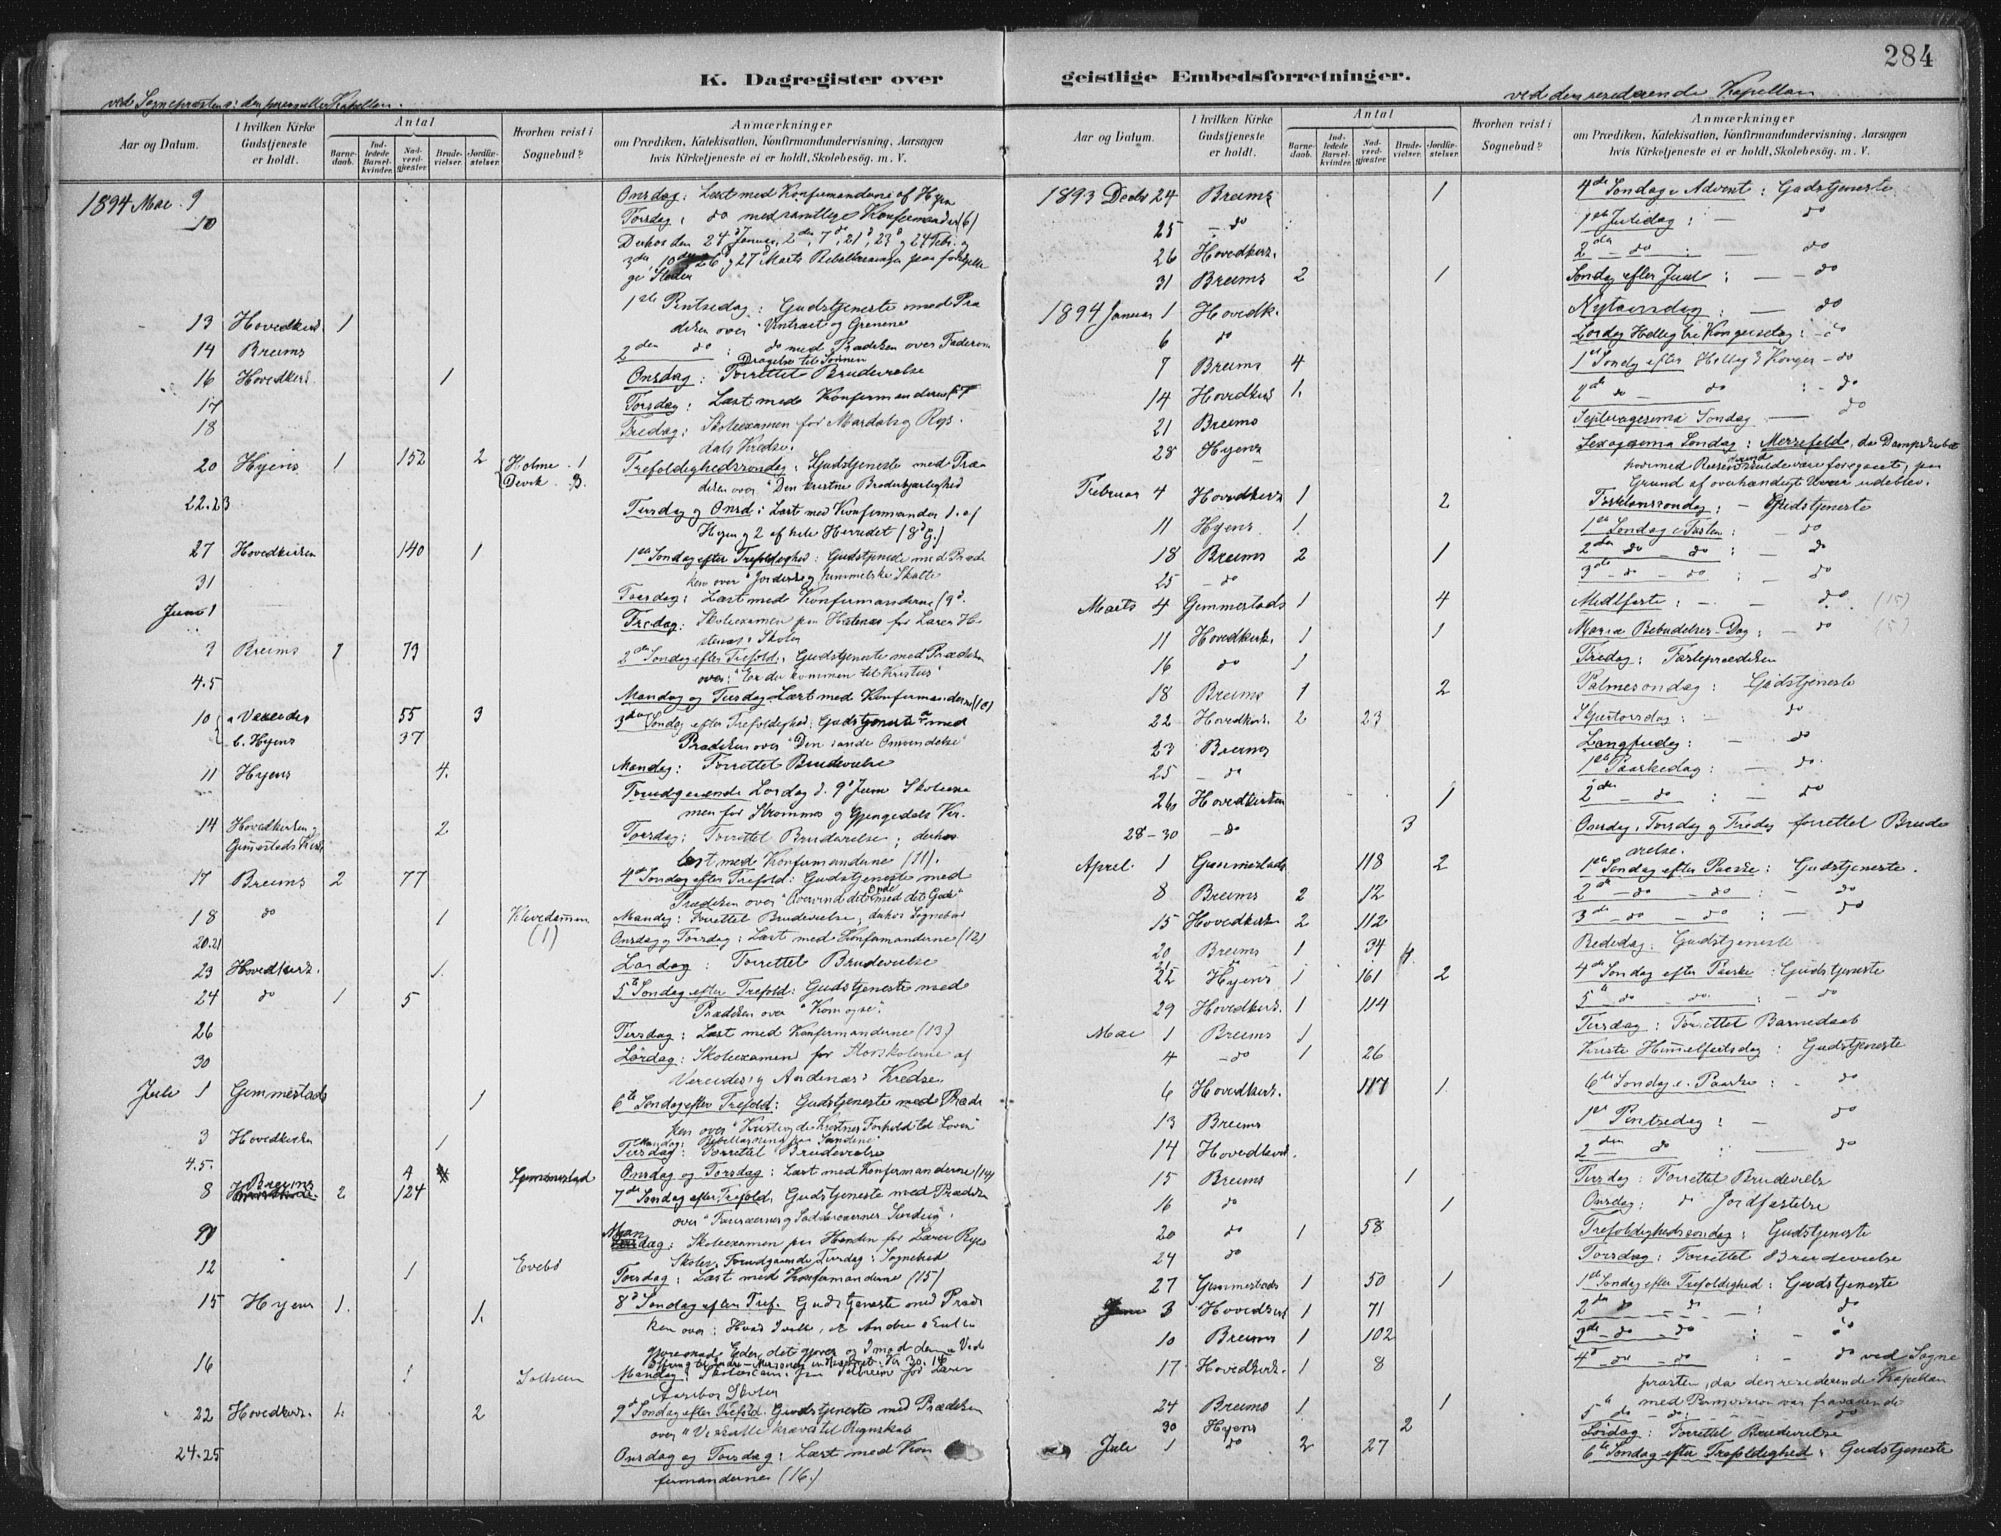 284
K. Dagregister over
geistlige Embedsforretninger.
ved Sognepræsten
ved den residerende Kapellan
Aar og Datum.
I hvilken Kirke Gudstjeneste er holdt.
Antal
Barnedaab.
Indledede Barselkvinder.
Nadverdgjæster
Brudevielser
Jordfæstelser
Hvorhen reist i Sognebud?
Anmærkninger
om Prædiken, Katekisation, Konfirmandundervisning, Aarsagen
hvis Kirketjeneste ei er holdt, Skolebesög. m. V.
1894 Mai 9 Onsdag: Læst med Konfirmanderne af Hyen
10 Torsdag: do med samtlige Konfirmander (6)
Derhos den 24 Januar, 2den, 7de, 21d, 23d og 24 Febr. og
3die 10de 26d og 27d Marts Bibellæsninger paa forskjelle
ge Steder
13 Hovedkirk. 1 1ste Pintsedag: Gudstjeneste med Præ
diken over "Vintræet og Grenene
14 Breims 2den do : do med Prædiken over Faderens
Dragelse til Sønnen
16 Hovedkirk. 1 Onsdag: Forrettet Brudevielse
17 Torsdag: Læst med Konfirmanderne 7
18 Fredag: Skoleexamen for Mardals og Rys
dals Kredse.
20 Hyens 1 152 2 Holme 1 Trefoldighedssøndag: Gudstjeneste med Præ
Devik 3. diken over "Den kristne Broderkjærlighed
22.23 Tirsdag og Onsd: Læst med Konfirmander 1. af
Hyen og 2 af hele Herredet (8d G.)
27 Hovedkirken 140 1 1ste Søndag efter Trefoldighed: Gudstjeneste med Præde
ken over "Jordiske og himmelske Skatte
31 Torsdag: Læst med Konfirmanderne (9d.
Juni 1 Fredag: Skoleexamen paa for Lærer
Skoler
3 Breims 1 73 2den Søndag efter Trefold: Gudstjeneste med Prædiken
over: "Er du kommen til Kristus"
4.5 Mandag og Tirsdag Læst med Konfirmanderne (10)
10 a. Vereides 55 3 3die Søndag efter Trefoldighed: Gudstjeneste med
b. Hyens 37 Prædiken over "Den sande Omvendelse"
11 Hyens 4. Mandag: Forrettet Brudevielse
Foregaaende Lørdag d. 9d Juni Skoleexa
men for Strømmes og Gjengedals Kr.
14 Hovedkirken og 2 Torsdag: Forrettet Brudevielse; derhos
Gimmestads Kirke læst med Konfirmanderne (11).
17 Breims 2 77 4de Søndag efter Trefold: Gudstjeneste med
Prædiken over "Overvind det Onde med det Gode"
18 do 1 Klevedamen Mandag: Forrettet Brudevielse, derhos Sognebud
(1)
20.21 Onsdag og Torsdag: Læst med Konfirmanderne (12)
23 Hovedkirk. 1. Lørdag: Forrettet Brudevielse
24 do 1 5 5te Søndag efter Trefold: Gudstjeneste med
Prædiken over "Kom og se".
26 Tirsdag: Læst med Konfirmanderne (13)
30 Lørdag: Skoleexamen for Storskolerne af
Vereides og Andenæs Kredse.
Juli 1 Gimmestads 1 6te Søndag efter Trefold: Gudstjeneste med Præde
ken over "Kristi og de Kristnes Forhold til Loven"
3 Hovedkirken 1 Mandag: Bibellæsning paa Sandene
Tirsdag: Forrettet Brudevielse
4.5. Gimmestad Onsdag og Torsdag: Læst med Konfirmanderne (14)
8 Breims 2 124 7de Søndag efter Trefold. Gudstjeneste med Prædiken
over
9 Mandag: Skoleexamen paa for Lærer Ryss
Skoler, Foregaaende Tirsdag: Sognebud
12 1 Evebø Torsdag: Læst med Konfirmanderne (15)
15 Hyens 1. 1. 8d Søndag efter Tref. Gudstjeneste med Præde
ken over: Hvad I ville, at Andre skulle
gjøre mod Eder, det gjører og I mod dem
16 1 Solheim Mandag: Skoleexam. paa Solheim for Lærer
Skoler
22 Hovedkirk. 1. 2 9de Søndag efter Trefold. Gudstjeneste med Prædiken
over "Vi skulle kræves til Regnskab
24.25 Onsdag og Torsdag: Læst med Kon
firmanderne (16.)
Aar og Datum.
I hvilken Kirke Gudstjeneste er holdt.
Antal
Barnedaab.
Indledede Barselkvinder.
Nadverdgjæster
Brudevielser
Jordfæstelser
Hvorhen reist i Sognebud?
Anmærkninger
om Prædiken, Katekisation, Konfirmandundervisning, Aarsagen
hvis Kirketjeneste ei er holdt, Skolebesög. m. V.
1893 Decbr 24 Breims 1 4de Søndag i Advent: Gudstjeneste
25 - do 1ste Juledag: - do
26 Hovedkirk. 2den - do : - do
31 Breims 2 1 Søndag efter Juul : - do
1894 Januar 1 Hovedk. Nytaarsdag: - do
6 do Lørdag Hellig tre Kongersdag: - do
7 Breims 4 1ste Søndag efter Hellig 3 Konger - do
14 Hovedkirk 1. 2de - do - do : - do
21 Breims Septuagesima Søndag - do
28 Hyens Sexagesima Søndag: Messefald, da Dampskibet
hvormed Reisen skulde være foregaaet, paa
Grund af overhændigt Uveir udeblev.
Februar 4 Hovedkirk 1 2 Fastelavnssøndag: - Gudstjeneste
11 Hyens 1. 1ste Søndag i Fasten: - do
18 Breims 2 1 2den do - do : - do
25 - do 3die - do - do : - do
Marts 4 Gimmestads 1 4 Midfaste: - - do (15)
11 Hovedkirk. 1 1 Mariæ Bebudelses-Dag: - do
16 do 1 Fredag: Fasteprædiken
18 Breims 1 2 Palmesøndag: Gudstjeneste
22 Hovedkirk. 2 23 Skjærtorsdag: - do
23 Breims Langfredag: - do
25 - do 1ste Paaskedag: - do.
26 Hovedkirken 1 2den - do : - do
28-30 - do 3 Onsdag, Torsdag og Fredag forrettet Brude
vielse.
April 1 Gimmestads 118 2 1ste Søndag efter Paaske: Gudstjeneste.
8 Breims 2 12 2de - do - do : - do
15 Hovedkirk 2 112 3die - do - do : - do
20 Breims 1 34 Bededag: Gudstjeneste
22 Hyens 1 161 2 4de Søndag efter Paaske: Gudstjeneste
29 Hovedkirk. 1 114 5te - do - do : - do
Mai 1 Breims 1 Tirsdag: Forrettet Barnedaab
4 - do 1 26 Kristi Himmelfartsdag: Gudstjeneste
6 Hovedkirk. 117 1 6te Søndag e. Paaske: - do
13 Breims 1ste Pintsedag: - do
14 Hovedkirk. 2den do : - do
15 Breims 1 Tirsdag: Forrettet Brudevielse
16 do 1 Onsdag: do Jordfæstelse
20 do 1 58 Trefoldighedssøndag: Gudstjeneste
24 do Torsdag: Forrettet Brudevielse
27 Gimmestads 1 50 1 1ste Søndag efter Trefoldighed: Gudstjeneste
Juni 3 Hovedkirk 1 71 2den - do - do : - do
10 Breims 1 102 3die - do - do : - do
17 Hovedkirk. 1 8 4de - do - do : - do ved Sogne
præsten, da den residerende Kapellan
med Permission var fraværende
24 Breims 1 1 5te - do - do : do
30 Hyens 2 Lørdag: Forrettet Brudevielse
Juli 1 do 2 27 6te Søndag efter Trefoldighed: Gudstjeneste